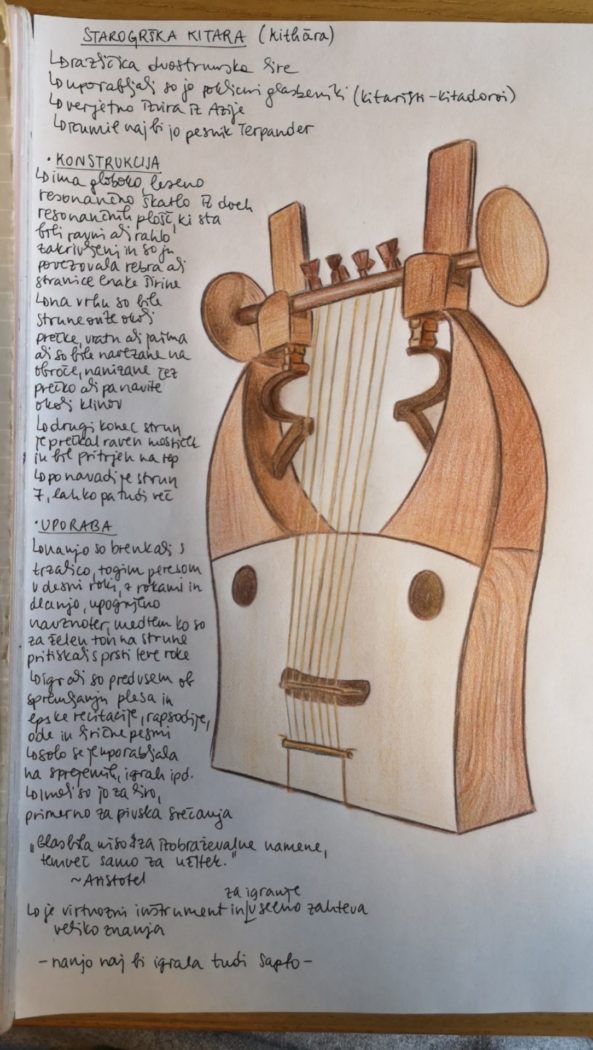 STAROGRŠKA KITARA (kithára)
↳ različica dvostrunske lire
↳ uporabljali so jo poklicni glasbeniki (kitaristi - kitadorosi)
↳ verjetno izvira iz Azije
↳ izumil naj bi jo pesnik Terpander
• KONSTRUKCIJA
↳ ima globoko, leseno
resonančno škatlo iz dveh
resonančnih plošč, ki sta
bili ravni ali rahlo
zakrivljeni in so ju
povezovala rebra ali
stranice enake širine
↳ na vrhu so bile
strune okoli
prečke, vratu ali jarma
ali so bile navezane na
obroče, nanizane čez
prečko ali pa navite
okoli klinov
↳ drugi konec strun
je prečkal raven mostiček
in bil pritrjen na rep
↳ po navadi je strun
7, lahko pa tudi več
• UPORABA
↳ nanjo so brenkali s
trzalico, togim peresom
v desni roki, z rokami in
dlanjo, upognjeno
navznoter, medtem ko so
za želen ton na strune
pritiskali s prsti leve roke
↳ igrali so predvsem ob
spremljanju plesa in
epske recitacije, rapsodije,
ode in lirične pesmi
↳ solo se je uporabljala
na sprejemih, igrah ipd.
↳ imeli so jo za liro,
primerno za pivska srečanja
"Glasbila niso za izobraževalne namene,
temveč samo za užitek."
~ Aristotel
za igranje
↳ je virtuozni instrument in vseeno zahteva
veliko znanja
- nanjo naj bi igrala tudi Sapfo -